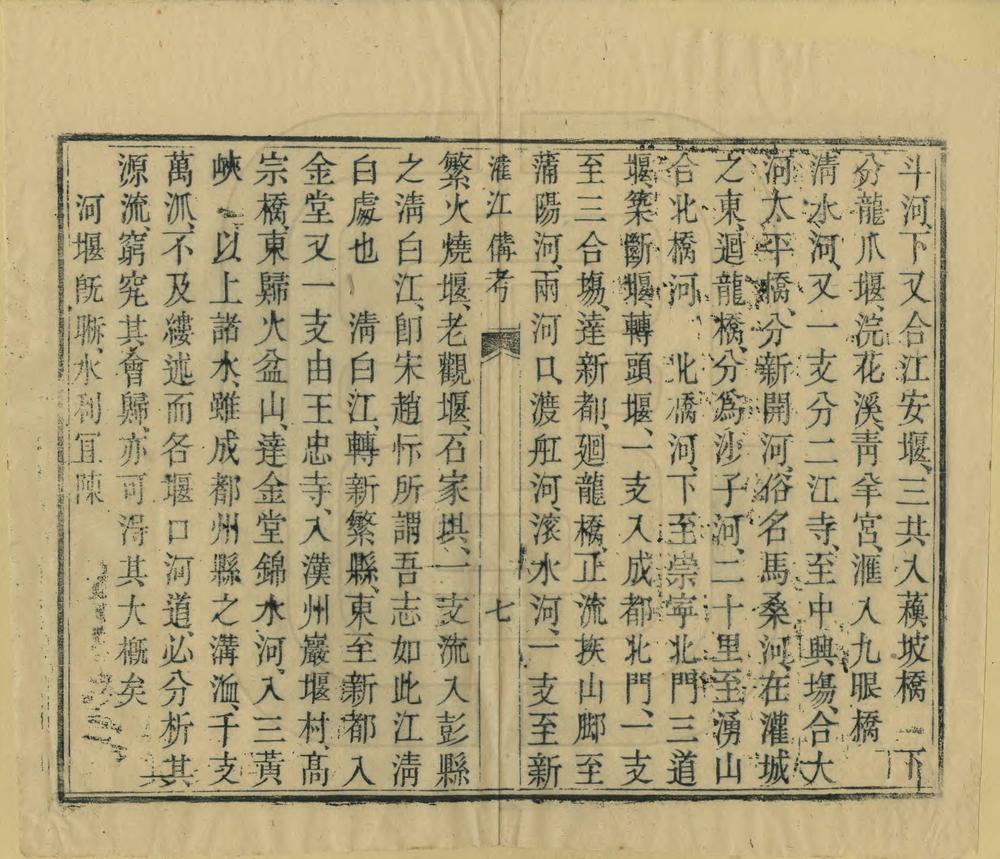 斗河、下又合江安堰、三共入蘓坡橋　下
分龍爪堰、浣花溪、靑羊宮、滙入九眼橋
淸水河、又一支分二江寺、至中興塲、合大
河太平橋、分新開河、俗名馬桑河、在灌城
之東、迴龍橋、分爲沙子河、二十里至湧山
合北橋河　北橋河、下至崇寧北門三道
堰、築斷堰、轉頭堰、一支入成都北門、一支
至三合塲、達新都、廻龍橋、正流挨山脚至
蒲陽河、兩河口、渡舡河、滚水河、一支至新
灌江備考　七
繁火燒堰、老觀堰、石家堋、一支流入彭縣
之淸白江、卽宋趙忭所謂吾志如此江淸
白處也　淸白江、轉新繁縣、東至新都入
金堂又一支由王忠寺、入漢州巖堰村、高
宗橋、東歸火盆山、達金堂錦水河、入三黃
峽　以上諸水、雖成都州縣之溝洫、千支
萬派、不及縷述而各堰口河道、必分析其
源流、窮究其會歸、亦可得其大槪矣
河堰旣聮、水利宜陳